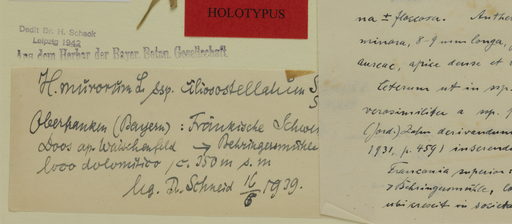 HOLOTYPUS
Dedit Dr. H. Schack
Leipzig 1942
Aus dem Herbar der Bayer. Botan. Gesellschaft
H. murorum L. ssp. ciliostellatum S
Oberfranken (Bayern): Fränkische Schwei
Doos ap. Waischenfeld → Behringersmühle
loco dolomitico, c. 350 m s. m
leg. D. Schneid 16/6 1939.
na ± floccosa. Anthe
minora, 8-9 mm longa,
aureae, apice dense et
Ceterum ut in ssp.
verosimiliter a ssp.
(Jord.) Zahn derivandum
1931, p. 459) inserenda
Franconia superior:
Behringersmühle, lo
ubi crescit in societa